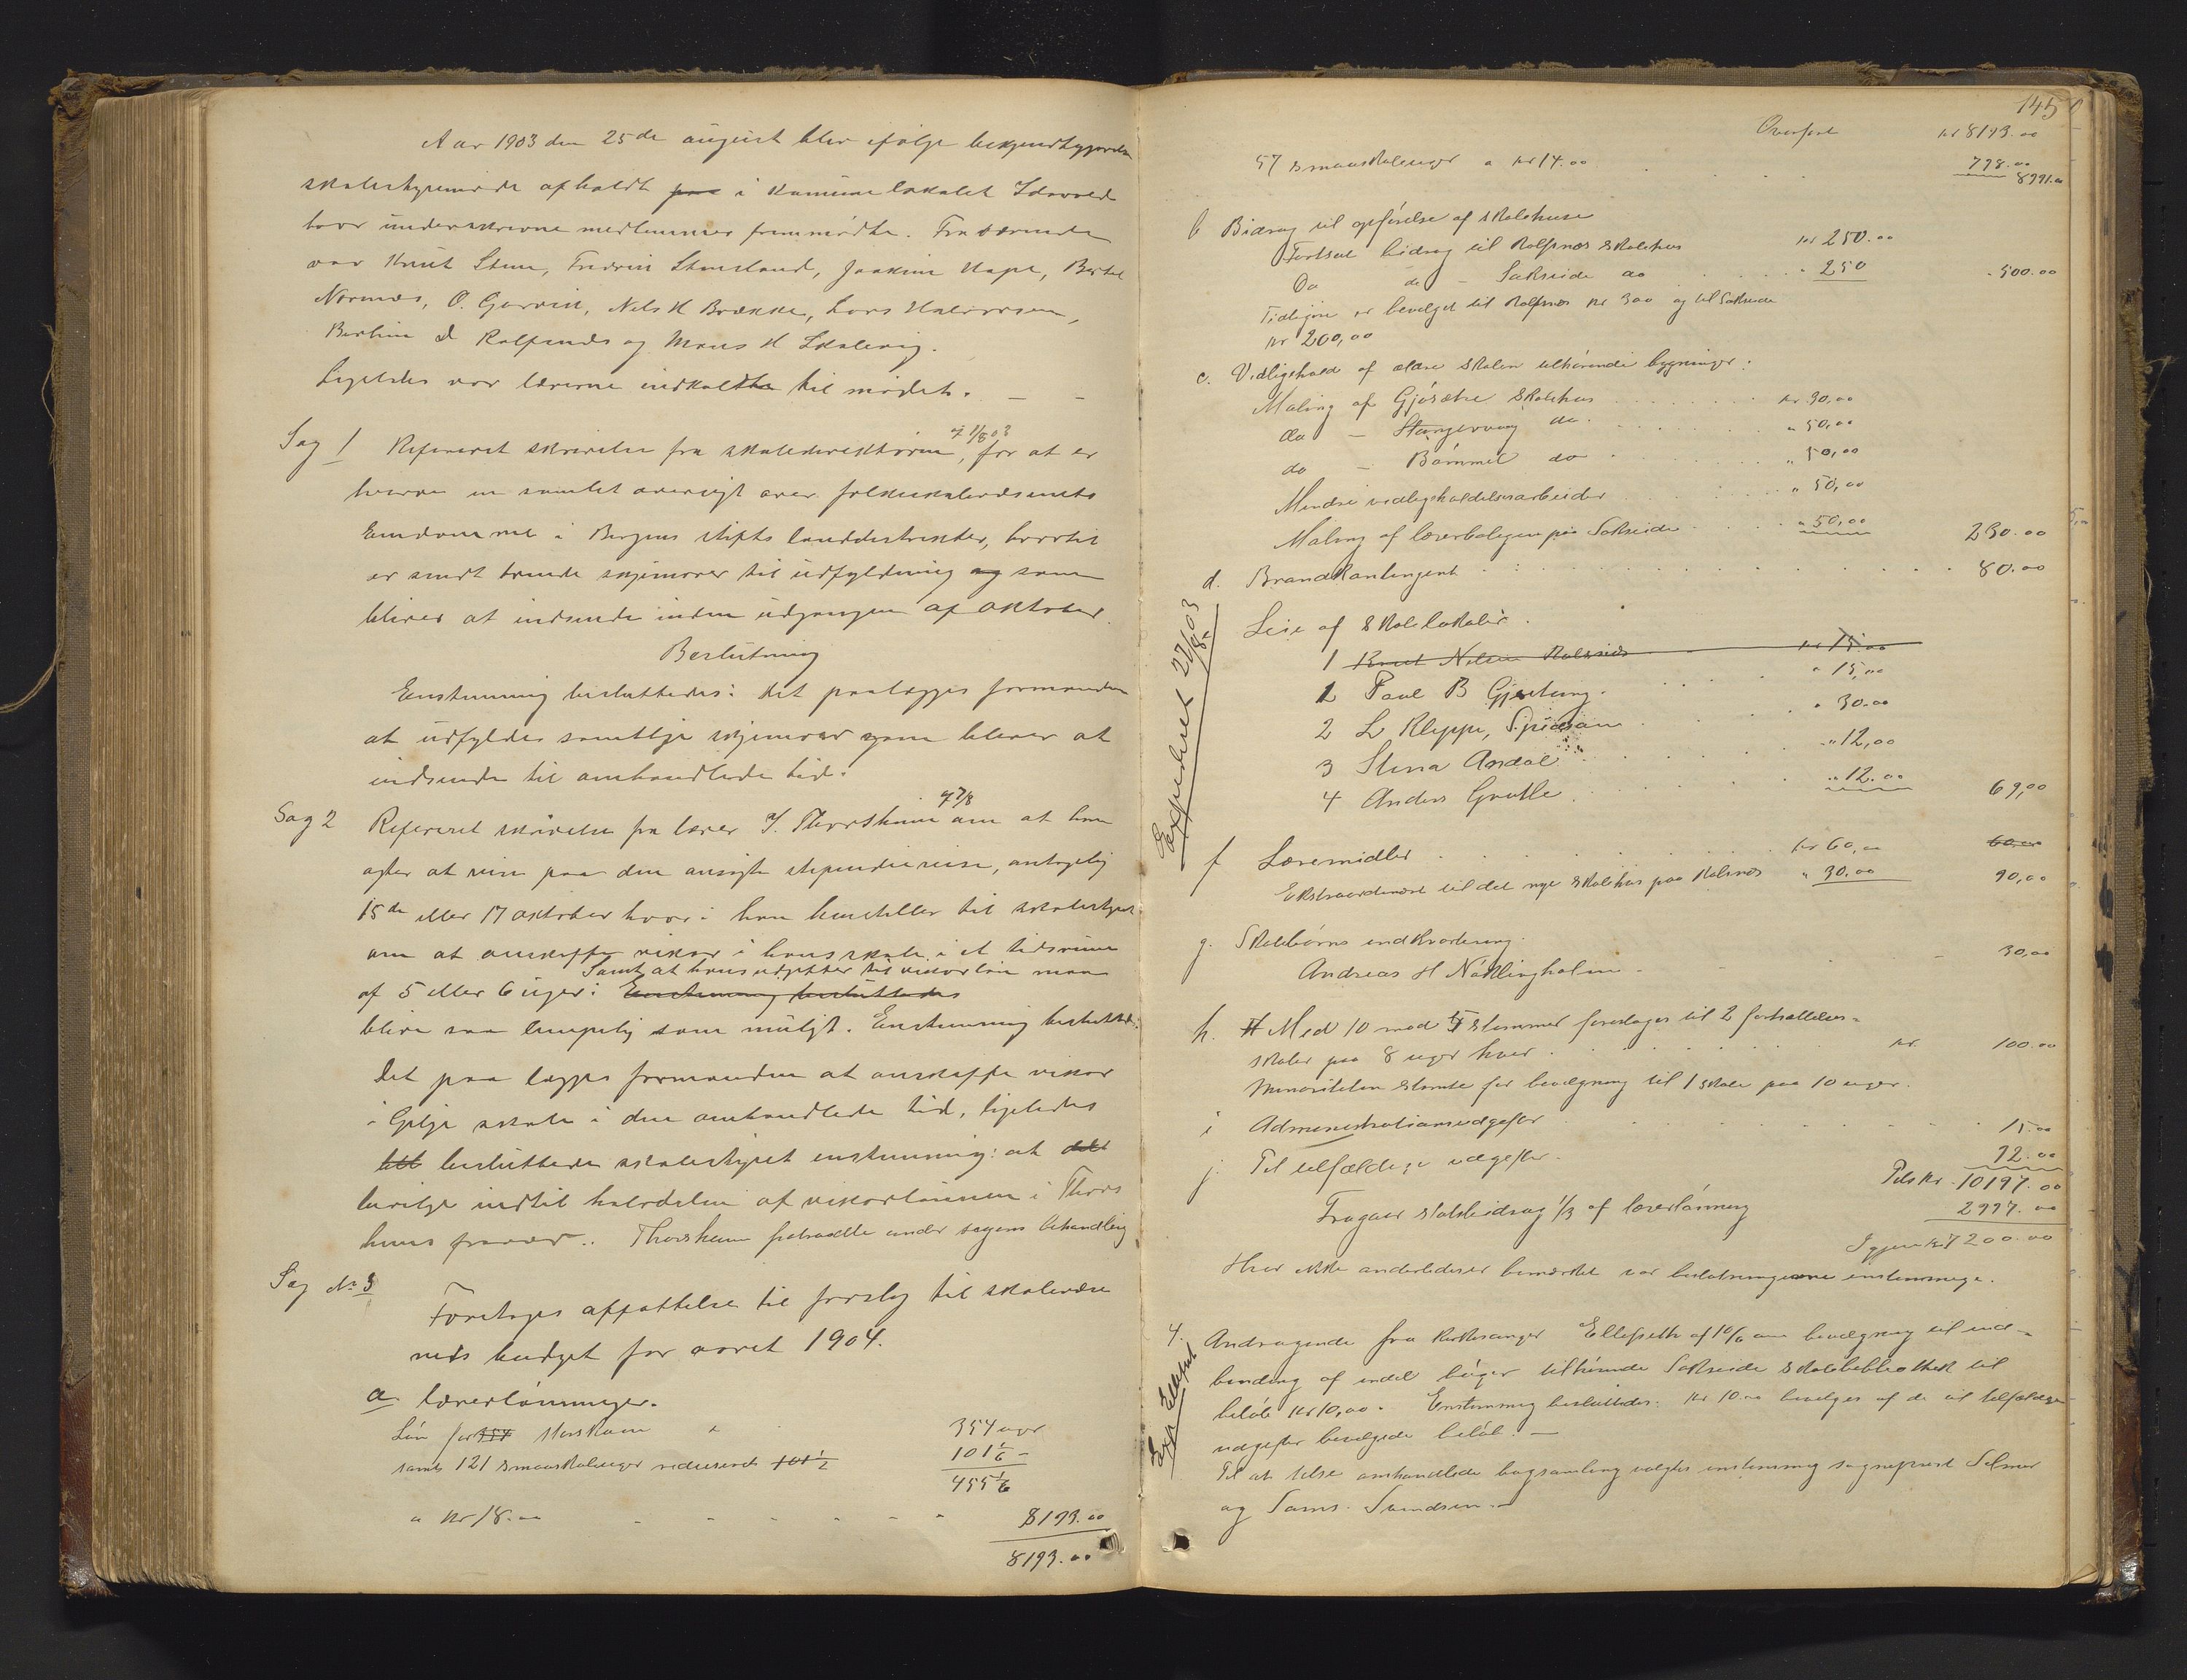 Aar 1903 den 25de august blev ifølge bekjendtgjørelse
skolestyremøde afholdt paa i kommunelokalet Idavold
hvor underskrevne medlemmer fremmødte. Fraværende
var Knut Stene, Fredrik Stensland, Joakim Hope, Bertel
Nornes, O. Garvik, Nels H Brække, Lars Halvorsen,
Bertin D Rolfsnes og Mons H Skalevig.
Ligeledes var lærerne indkaldte til mødet.
Sag 1 Refereret skrivelse fra skoledirektøren af 1/8 03, for at er
hverve en samlet oversigt over folkeskolevæsenets
Eiendomme i Bergens stifts landdistrikter, hvortil
er sendt trende skjemaer til udfyldning og som
bliver at indsende inden udgangen af oktober.
Beslutning
Enstemmig besluttedes: det paalægges formanden
at udfyldes samtlige skjemaer som bliver at
indsende til omhandlede tid.
Sag 2 Refereret skrivelse fra lærer T. Thorsheim af 7/8 om at han
agter at reise paa den ansøgte stipendiereise, antagelig
15de eller 17 oktober hvor: han henstiller til skolestyret
om at anskaffe vikar i hans skole i et tidsrum
Samt at hans udgifter til vikarløn maa
af 5 eller 6 uger: Enstemmig besluttedes
blive saa lempelig som muligt. Enstemmig besluttedes:
Det paa lægges formanden at anskaffe vikar
i Gilje skole i den omhandlede tid, ligeledes
det besluttede skolestyret enstemmig: at det
bevilge indtil halvdelen af vikarlønnen i Thors
heims fravær.. Thorsheim fratraadte under sagens behandling
Sag No 3
Foretoges affattelse til forslag til skolevæse
nets budget for aaret 1904.
a. Lærerlønninger.
Løn for 354 storskole a 354 uger
samt 121 smaaskoleuger reduceret 101 1/2 101 1/6 -
455 1/6
a kr 18.00 8193.00
8193.00
145
Overført kr 8193.00
57 smaaskoleuger a kr 14.00 798.00
8991.00
b Bidrag til opførelse af skolehuse
Fortsat bidrag til Rolfsnes skolehus kr 250.00
Do do - Sakseide do " 250 - 500.00
Tidligere er bevilget til Rolfsnes kr 300 og til Sakseide
kr 200,00
c. Vedligehold af ældre skolen tilhørende bygninger:
Maling af Gjøsæter skolehus kr. 90,00
do - Stangervaag do. " 50,00
do - Bømmel do " 50,00
Mindre vedligeholdelsesarbeider " 50,00
Maling af lærerboligen paa Sakseide " 50,00 290.00
d. Brandkontingent 80.00
Expederet 27/8 03
Leie af skolelokaler.
1 Knut Nelsen Rolsnes kr 15.00
1 Paul B Gjertung. " 15,00
2 L Kleppe, Spidsøen " 30.00
3 Stina Andal " 12,00
4 Anders Grutle " 12.00 69,00
f Læremidler kr 60,00 60.00
Ekstraordinært til det nye skolehus paa Rolsnes " 30.00 90,00
g. Skolebørns indkvartering.
Andreas H Nøklingholm 30,00
h. Med 10 mod 5 stemmer foreslages til 2 fortsættelses-
skoler paa 8 uger hver. kr. 100.00
Minoriteten stemte for bevilgning til 1 skole paa 10 uger.
i Administrationsudgifter 15.00
j. Til tilfældige udgifter. 92.00
Tils kr. 10197.00
Fragaar statsbidrag 1/3 af lærerlønning 2997.00
Igjen kr 7200.00
Hvor ikke anderledes er bemærket var beslutningerne enstemmige.
4. Andragende fra kirkesanger Ellefseth af 10/6 om bevilgning til ind-
binding af endel bøger tilhørende Sakseide skolebibliothek til
beløb kr 10,00. Enstemmig besluttedes: kr 10.00 bevilges af de til tilfældige
udgifter bevilgede beløb. —
Exp Ellefset
Til at tilse omhandlede bogsamling valgtes enstemmig sogneprest Selmer
og Sams. Svendsen. —